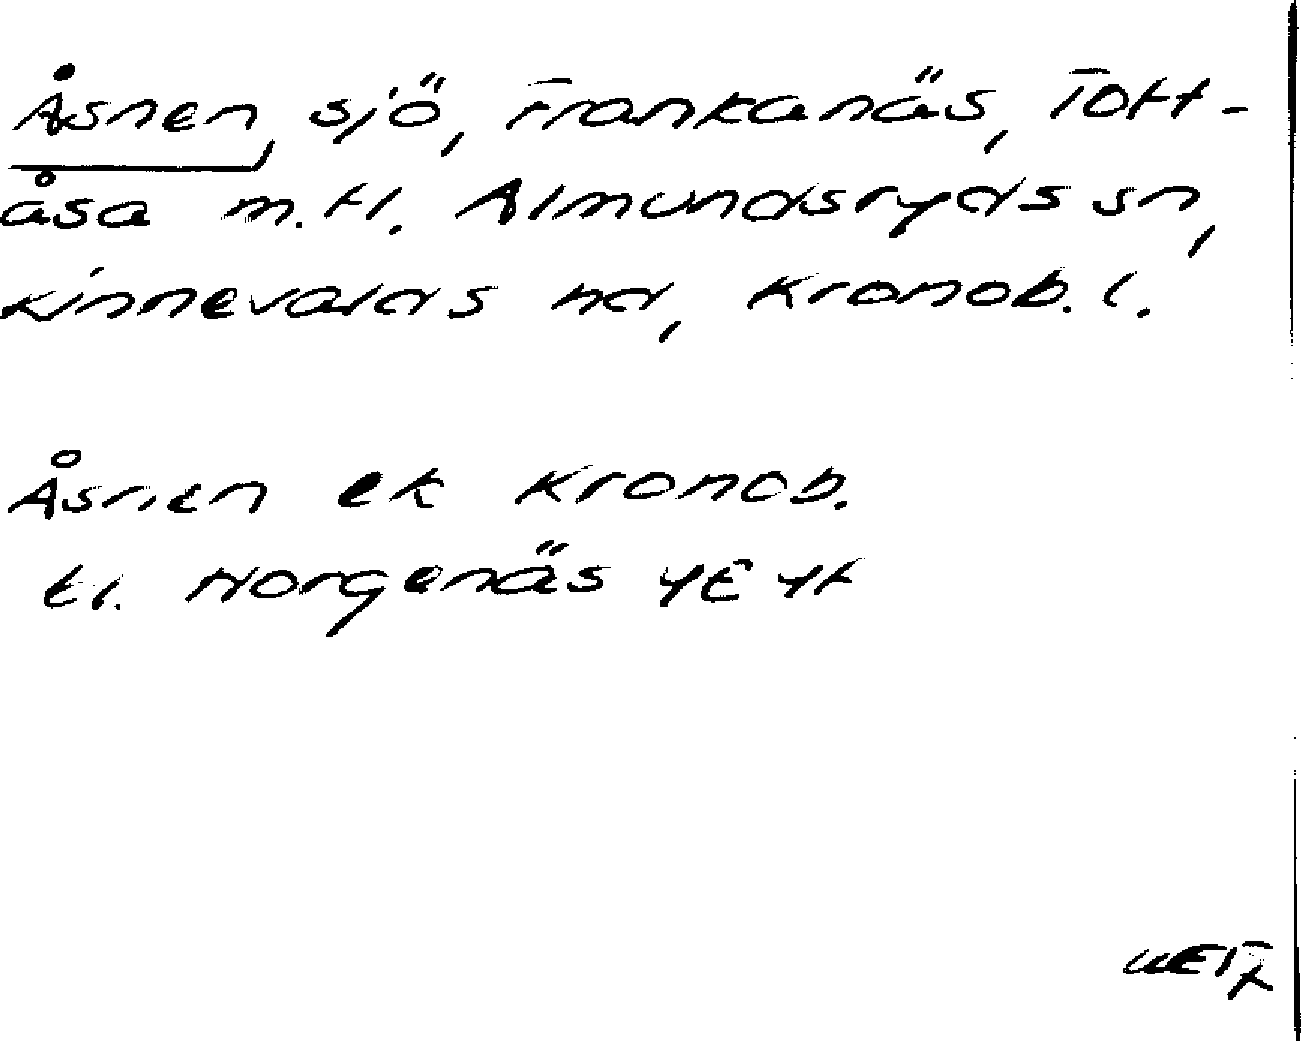 Åsnen, sjö, Frankanäs, Tott-
åsa m.fl. Almundsryds sn,
Kinnevalds hd, Kronob. l.
Åsnen ek Kronob.
tr. Horgenäs